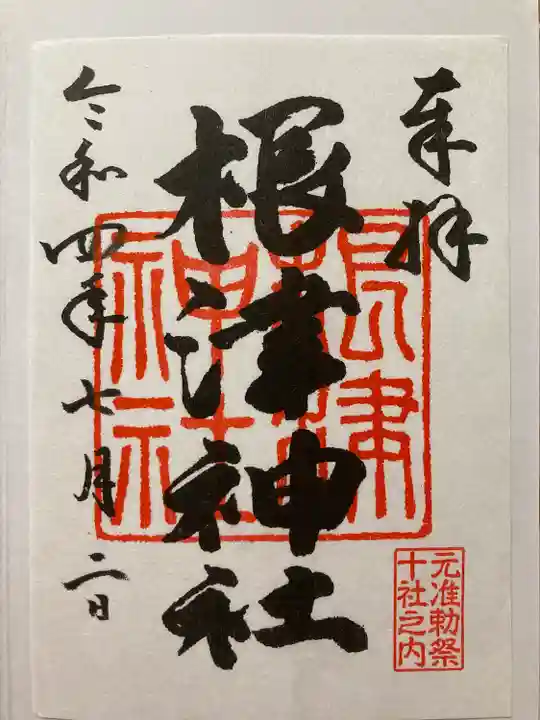 奉拝
根津神社
根津
神社
令和四年七月二日
元准勅祭
十社之内